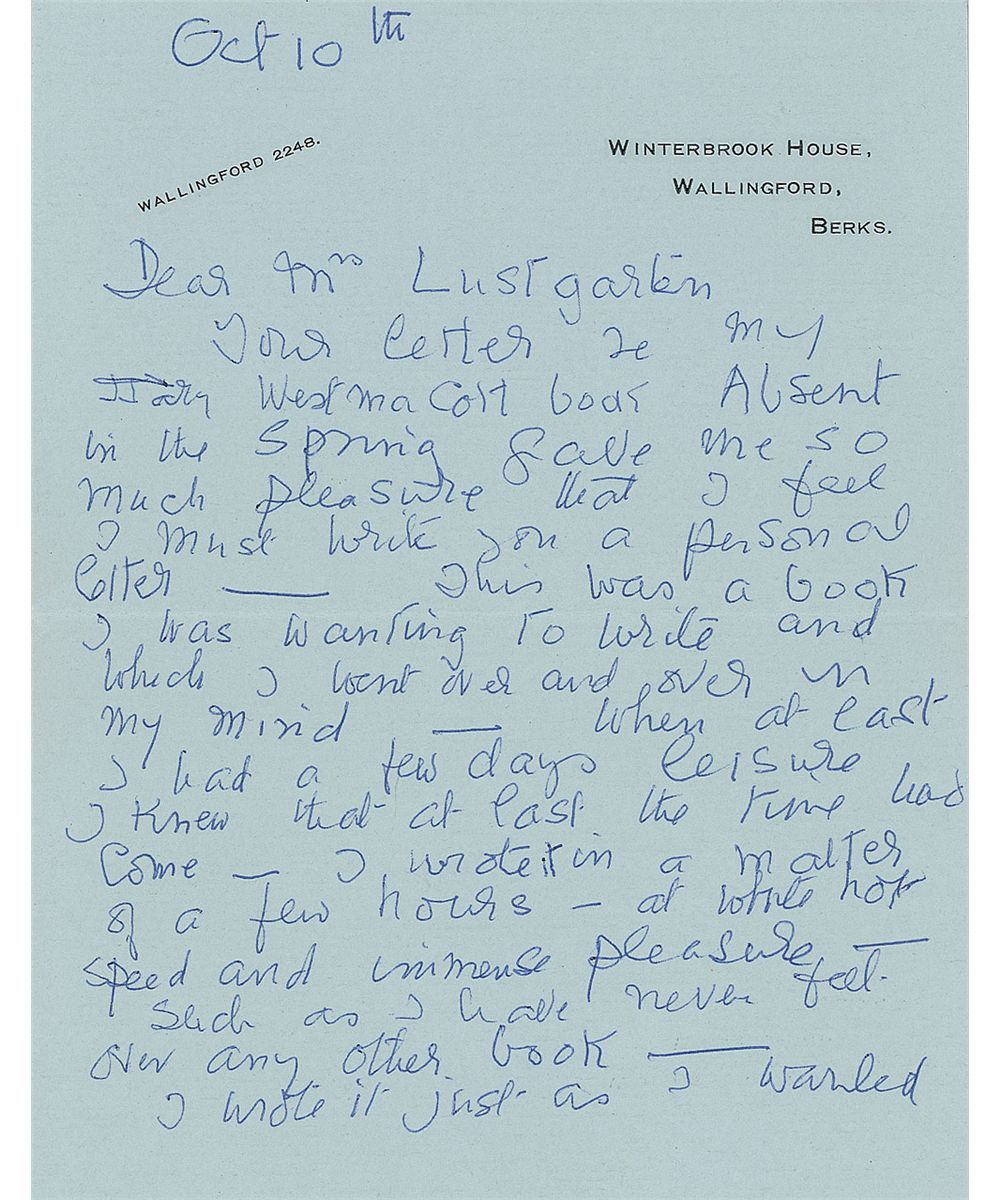 Oct 10th
WALLINGFORD 2248.
WINTERBROOK HOUSE,
WALLINGFORD,
BERKS.
Dear Mrs Lustgarten
Your letter re my
Mary Westmacott book Absent
in the Spring gave me so
much pleasure that I feel
I must write you a personal
letter — This was a book
I was wanting to write and
which I went over and over in
my mind — When at last
I had a few days leisure
I knew that at last the time had
come — I wrote it in a matter
of a few hours – at white hot
speed and immense pleasure —
such as I have never feel
over any other book —
I wrote it just as I wanted